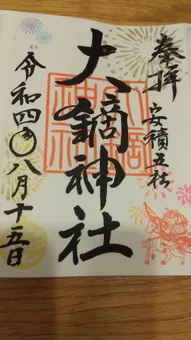 奉拝
安積五社
大鏑神社
令和四年八月十五日